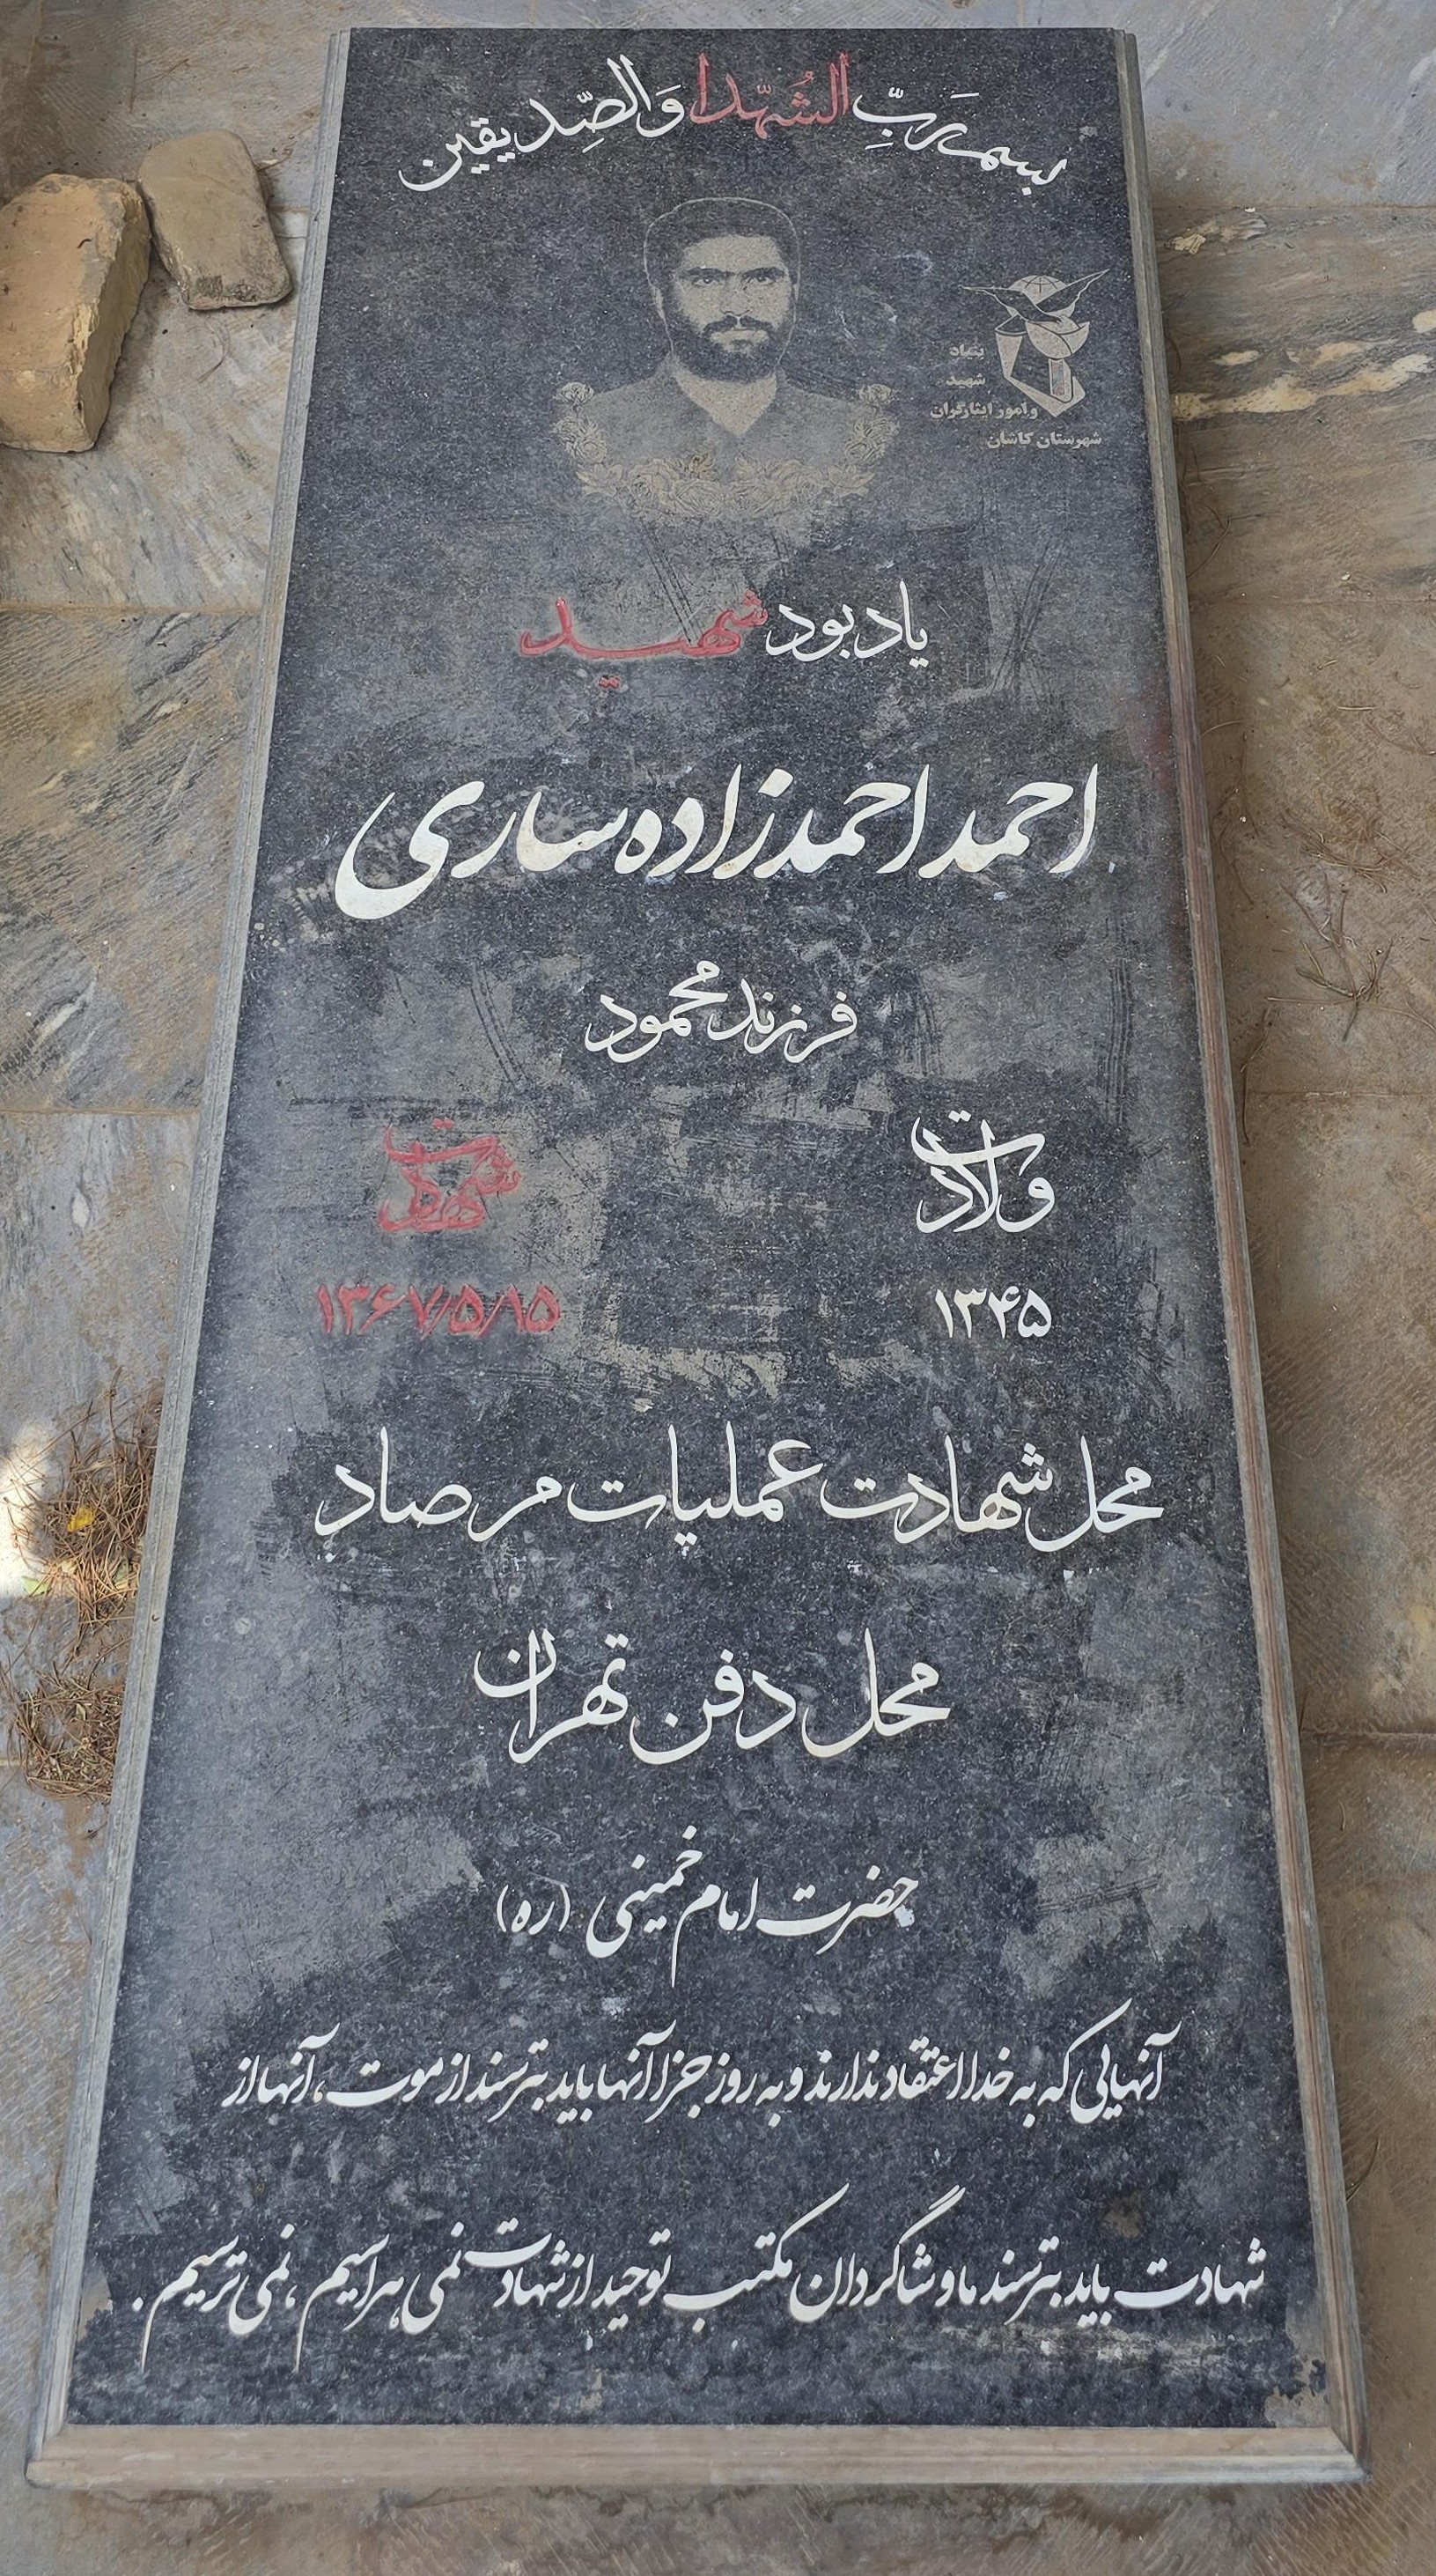 بسم رَبِّ الشُهّدا وَالصِّدیقین
بنیاد
شهید
و امور ایثارگران
شهرستان کاشان
یادبود شهید
احمد احمدزاده ساری
فرزند محمود
ولادت
۱۳۴۵
شهادت
۱۳۶۷/۵/۱۵
محل شهادت عملیات مرصاد
محل دفن تهران
حضرت امام خمینی (ره)
آنهایی که به خدا اعتقاد ندارند و به روز جزا آنها باید بترسند از موت، آنها از
شهادت باید بترسند ما و شاگردان مکتب توحید از شهادت نمی هراسیم، نمی ترسیم.